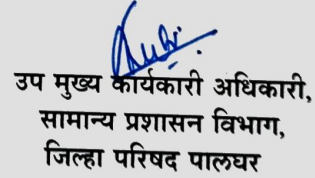 उप मुख्य कार्यकारी अधिकारी,
सामान्य प्रशासन विभाग,
जिल्हा परिषद पालघर